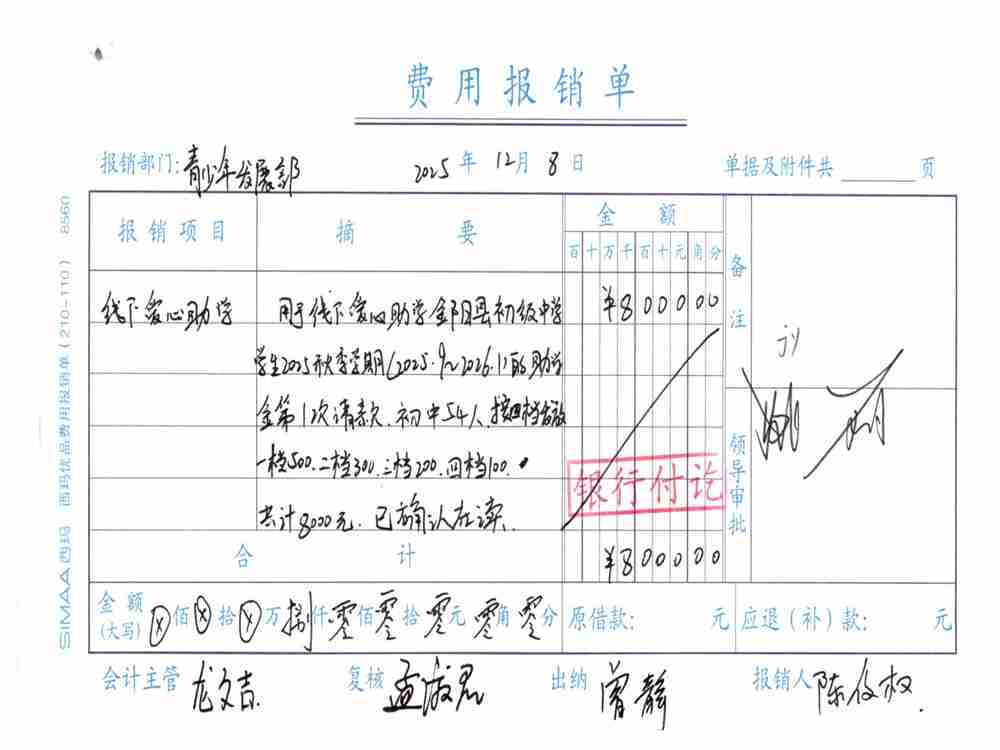 费用报销单
报销部门: 青少年发展部 2025 年 12 月 8 日 单据及附件共 页
报销项目 摘要 金额 备注
百 十 万 千 百 十 元 角 分
线下爱心助学 用于线下爱心助学 县初级中学 ¥800000
学生2025秋季学期(2025.9~2026.1)的助学
金第1次请款.初中54人.按四档发放
一档500.二档300.三档200.四档100.
共计8000元.已确认在读.
银行付讫
领导审批
合计 ¥800000
金额(大写) ⊗佰⊗拾⊗万捌仟零佰零拾零元零角零分 原借款: 元 应退(补)款: 元
会计主管 龙文吉 复核 孟淑君 出纳 曾静 报销人 陈俊权
SIMAA 西玛 西玛优品费用报销单(210-110) 8560